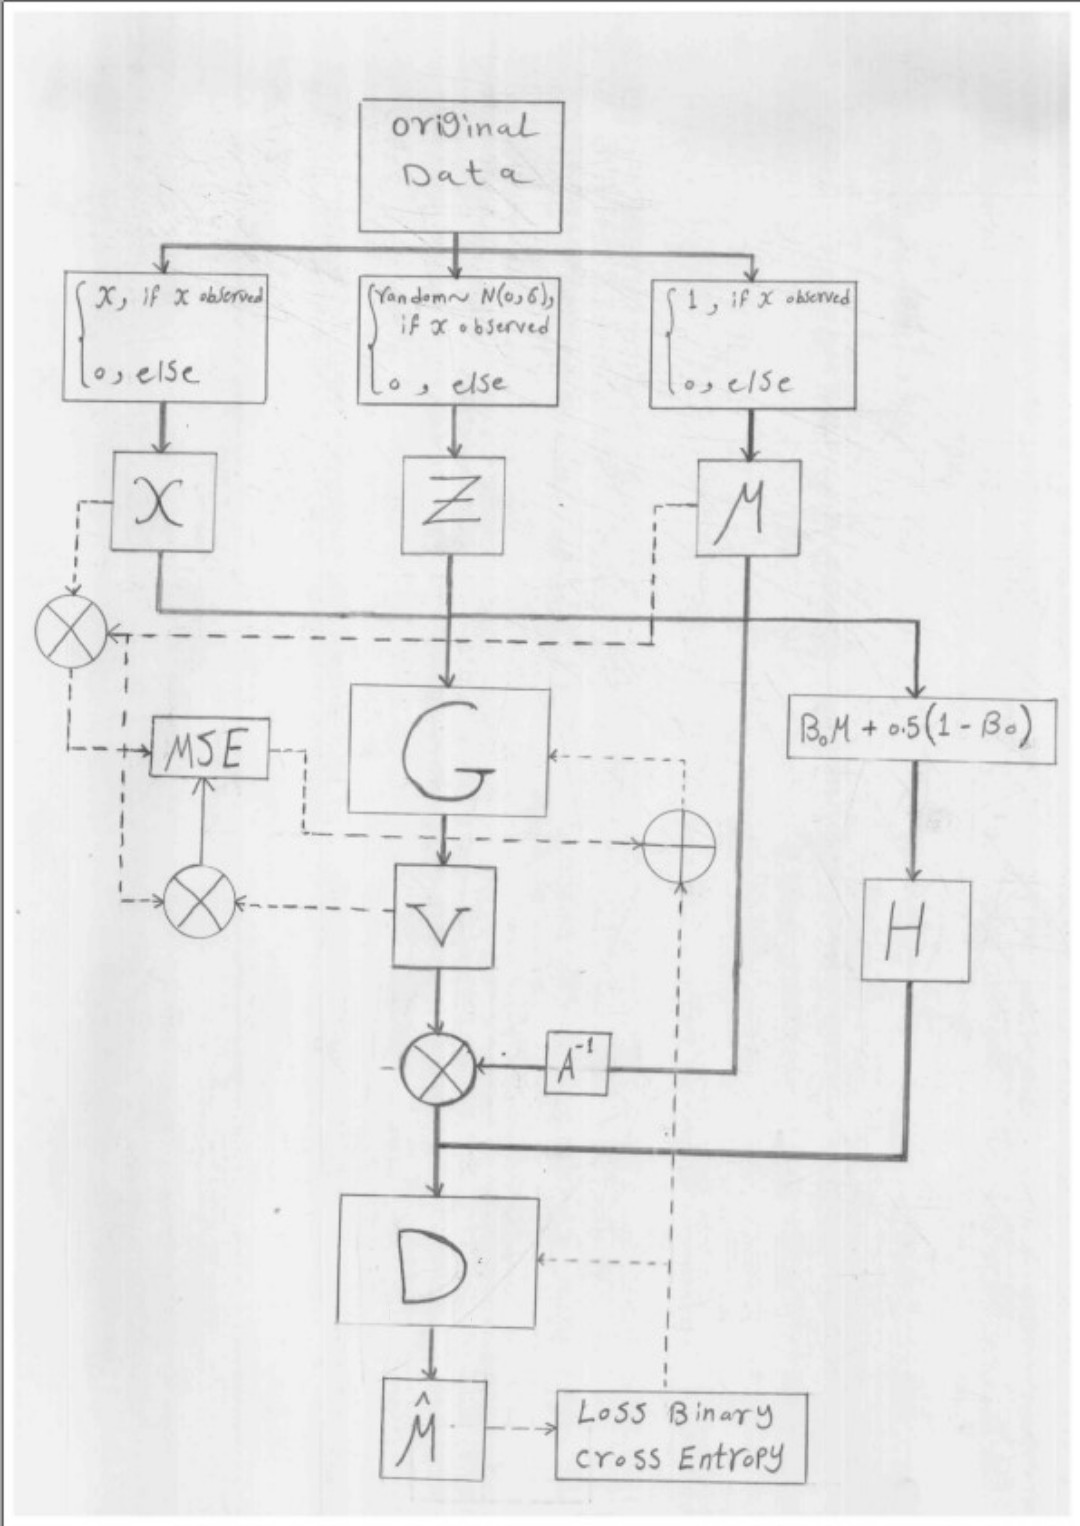 original
Data
x, if x observed
0, else
random~ N(0,6),
if x observed
0, else
1, if x observed
0, else
X
Z
M
G
MSE
B₀M + 0.5(1 - B₀)
V
H
A⁻¹
D
M̂
Loss Binary
Cross Entropy